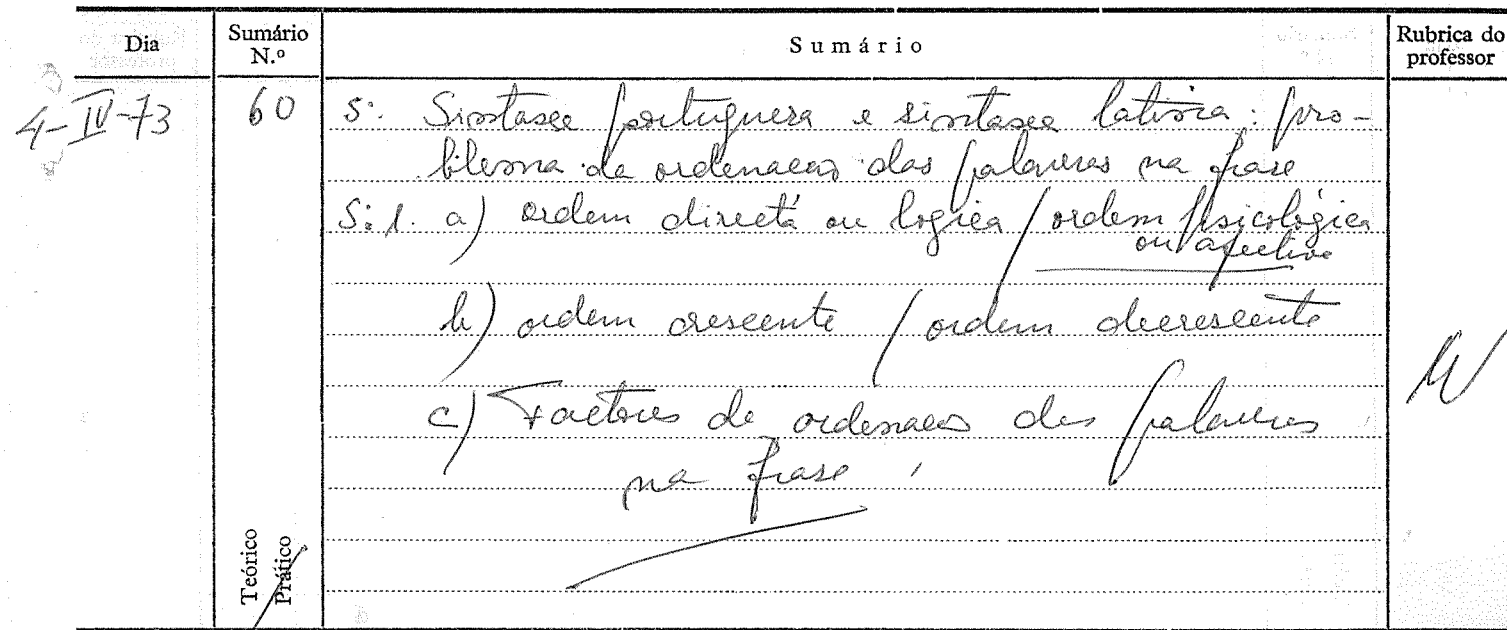 Dia
Sumário N.º
Sumário
Rubrica do professor
4-IV-73
60
5. Sintaxe portuguesa e sintaxe latina: pro-
blema da ordenação das palavras na frase
5.1. a) ordem directa ou lógica / ordem psicológica
ou afectiva
b) ordem crescente / ordem decrescente
c) Factores de ordenação das palavras
na frase
Teórico
Prático